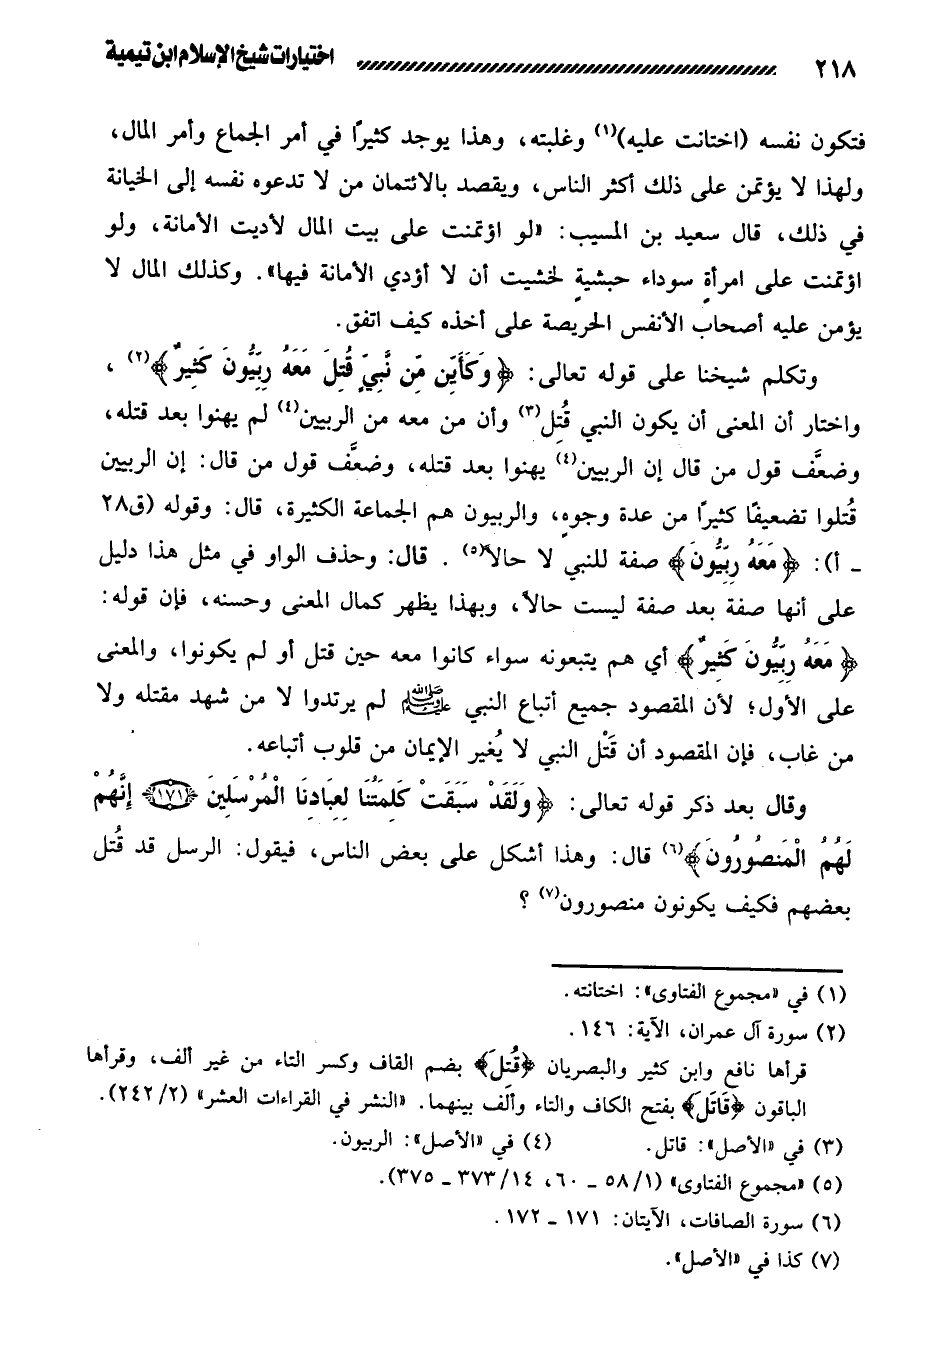 ٢١٨ اختيارات شيخ الإسلام ابن تيمية
فتكون نفسه (اختانت عليه)(١) وغلبته، وهذا يوجد كثيرًا في أمر الجماع وأمر المال،
ولهذا لا يؤتمن على ذلك أكثر الناس، ويقصد بالائتمان من لا تدعوه نفسه إلى الخيانة
في ذلك، قال سعيد بن المسيب: «لو اؤتمنت على بيت المال لأديت الأمانة، ولو
اؤتمنت على امرأةٍ سوداء حبشيةٍ لخشيت أن لا أؤدي الأمانة فيها». وكذلك المال لا
يؤمن عليه أصحاب الأنفس الحريصة على أخذه كيف اتفق.
وتكلم شيخنا على قوله تعالى: ﴿وَكَأَيِّن مِّن نَّبِيٍّ قُتِلَ مَعَهُ رِبِّيُّونَ كَثِيرٌ﴾(٢)،
واختار أن المعنى أن يكون النبي قُتل(٣) وأن من معه من الربيين(٤) لم يهنوا بعد قتله،
وضعَّف قول من قال إن الربيين(٤) يهنوا بعد قتله، وضعَّف قول من قال: إن الربيين
قُتلوا تضعيفًا كثيرًا من عدة وجوهٍ، والربيون هم الجماعة الكثيرة، قال: وقوله (ق٢٨
ـ أ): ﴿مَعَهُ رِبِّيُّونَ﴾ صفة للنبي لا حالاً(٥). قال: وحذف الواو في مثل هذا دليل
على أنها صفة بعد صفة ليست حالاً، وبهذا يظهر كمال المعنى وحسنه، فإن قوله:
﴿مَعَهُ رِبِّيُّونَ كَثِيرٌ﴾ أي هم يتبعونه سواء كانوا معه حين قتل أو لم يكونوا، والمعنى
على الأول؛ لأن المقصود جميع أتباع النبي ﷺ لم يرتدوا لا من شهد مقتله ولا
من غاب، فإن المقصود أن قَتْل النبي لا يُغير الإيمان من قلوب أتباعه.
وقال بعد ذكر قوله تعالى: ﴿وَلَقَدْ سَبَقَتْ كَلِمَتُنَا لِعِبَادِنَا الْمُرْسَلِينَ ﴿١٧١﴾ إِنَّهُمْ
لَهُمُ الْمَنصُورُونَ﴾(٦) قال: وهذا أشكل على بعض الناس، فيقول: الرسل قد قُتل
بعضهم فكيف يكونون منصورون(٧)؟
(١) في «مجموع الفتاوى»: اختانته.
(٢) سورة آل عمران، الآية: ١٤٦.
قرأها نافع وابن كثير والبصريان ﴿قُتِلَ﴾ بضم القاف وكسر التاء من غير ألف، وقرأها
الباقون ﴿قَاتَلَ﴾ بفتح الكاف والتاء وألف بينهما. «النشر في القراءات العشر» (٢/ ٢٤٢).
(٣) في «الأصل»: قاتل. (٤) في «الأصل»: الربيون.
(٥) «مجموع الفتاوى» (١/ ٥٨ ـ ٦٠، ١٤/ ٣٧٣ ـ ٣٧٥).
(٦) سورة الصافات، الآيتان: ١٧١ ـ ١٧٢.
(٧) كذا في «الأصل».